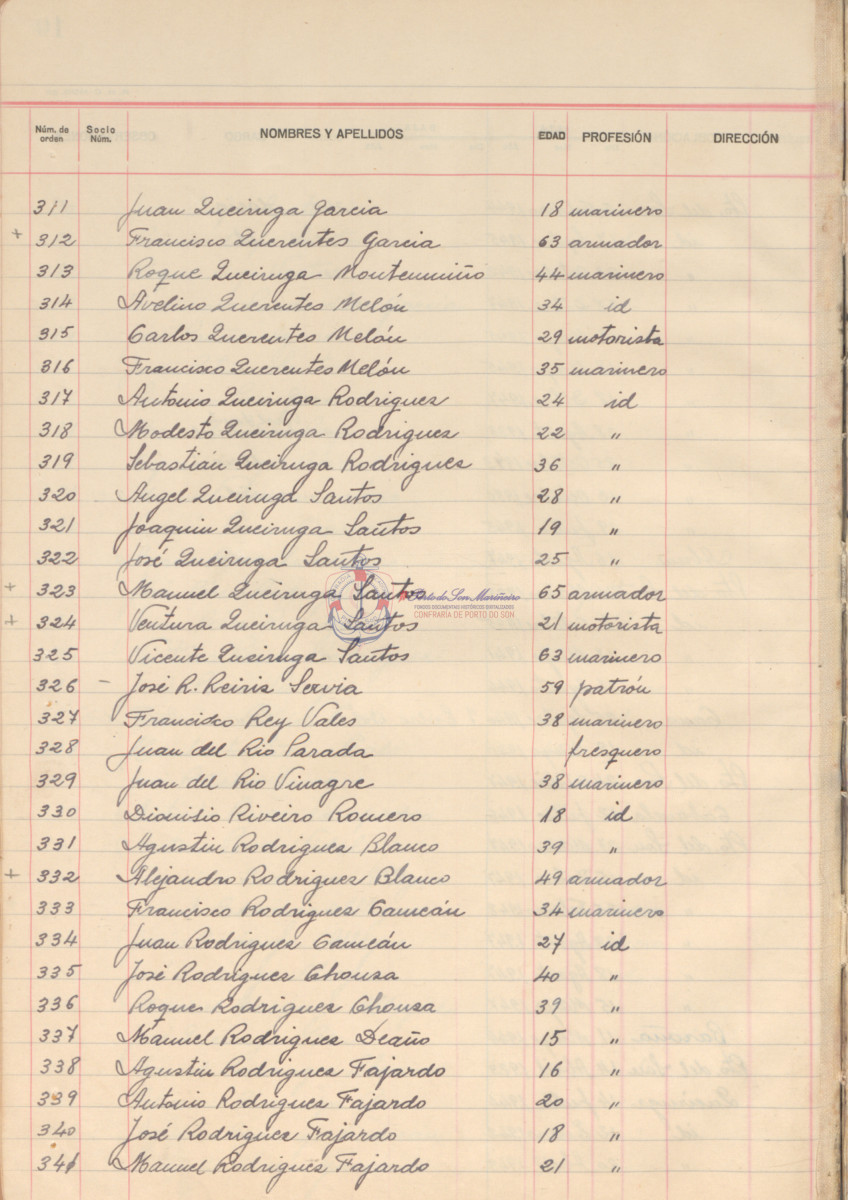 Núm. de orden Socio Núm. NOMBRES Y APELLIDOS EDAD PROFESIÓN DIRECCIÓN
311 Juan Queiruga Garcia 18 marinero
+ 312 Francisco Querentes Garcia 63 armador
313 Roque Queiruga Montemuiño 44 marinero
314 Avelino Querentes Melón 34 id
315 Carlos Querentes Melón 29 motorista
316 Francisco Querentes Melón 35 marinero
317 Antonio Queiruga Rodriguez 24 id
318 Modesto Queiruga Rodriguez 22 "
319 Sebastián Queiruga Rodriguez 36 "
320 Angel Queiruga Santos 28 "
321 Joaquin Queiruga Santos 19 "
322 José Queiruga Santos 25 "
+ 323 Manuel Queiruga Santos 65 armador
Porto do Son Mariñeiro
FONDOS DOCUMENTAIS HISTÓRICOS DIXITALIZADOS
CONFRARÍA DE PORTO DO SON
+ 324 Ventura Queiruga Santos 21 motorista
325 Vicente Queiruga Santos 63 marinero
326 - José R. Reiris Servia 59 patrón
327 Francisco Rey Vales 38 marinero
328 Juan del Rio Parada fresquero
329 Juan del Rio Vinagre 38 marinero
330 Dionisio Riveiro Romero 18 id
331 Agustin Rodriguez Blanco 39 "
+ 332 Alejandro Rodriguez Blanco 49 armador
333 Francisco Rodriguez Cameán 34 marinero
334 Juan Rodriguez Cameán 27 id
335 José Rodriguez Chousa 40 "
336 Roque Rodriguez Chousa 39 "
337 Manuel Rodriguez Deaño 15 "
338 Agustin Rodriguez Fajardo 16 "
339 Antonio Rodriguez Fajardo 20 "
340 José Rodriguez Fajardo 18 "
341 Manuel Rodriguez Fajardo 21 "